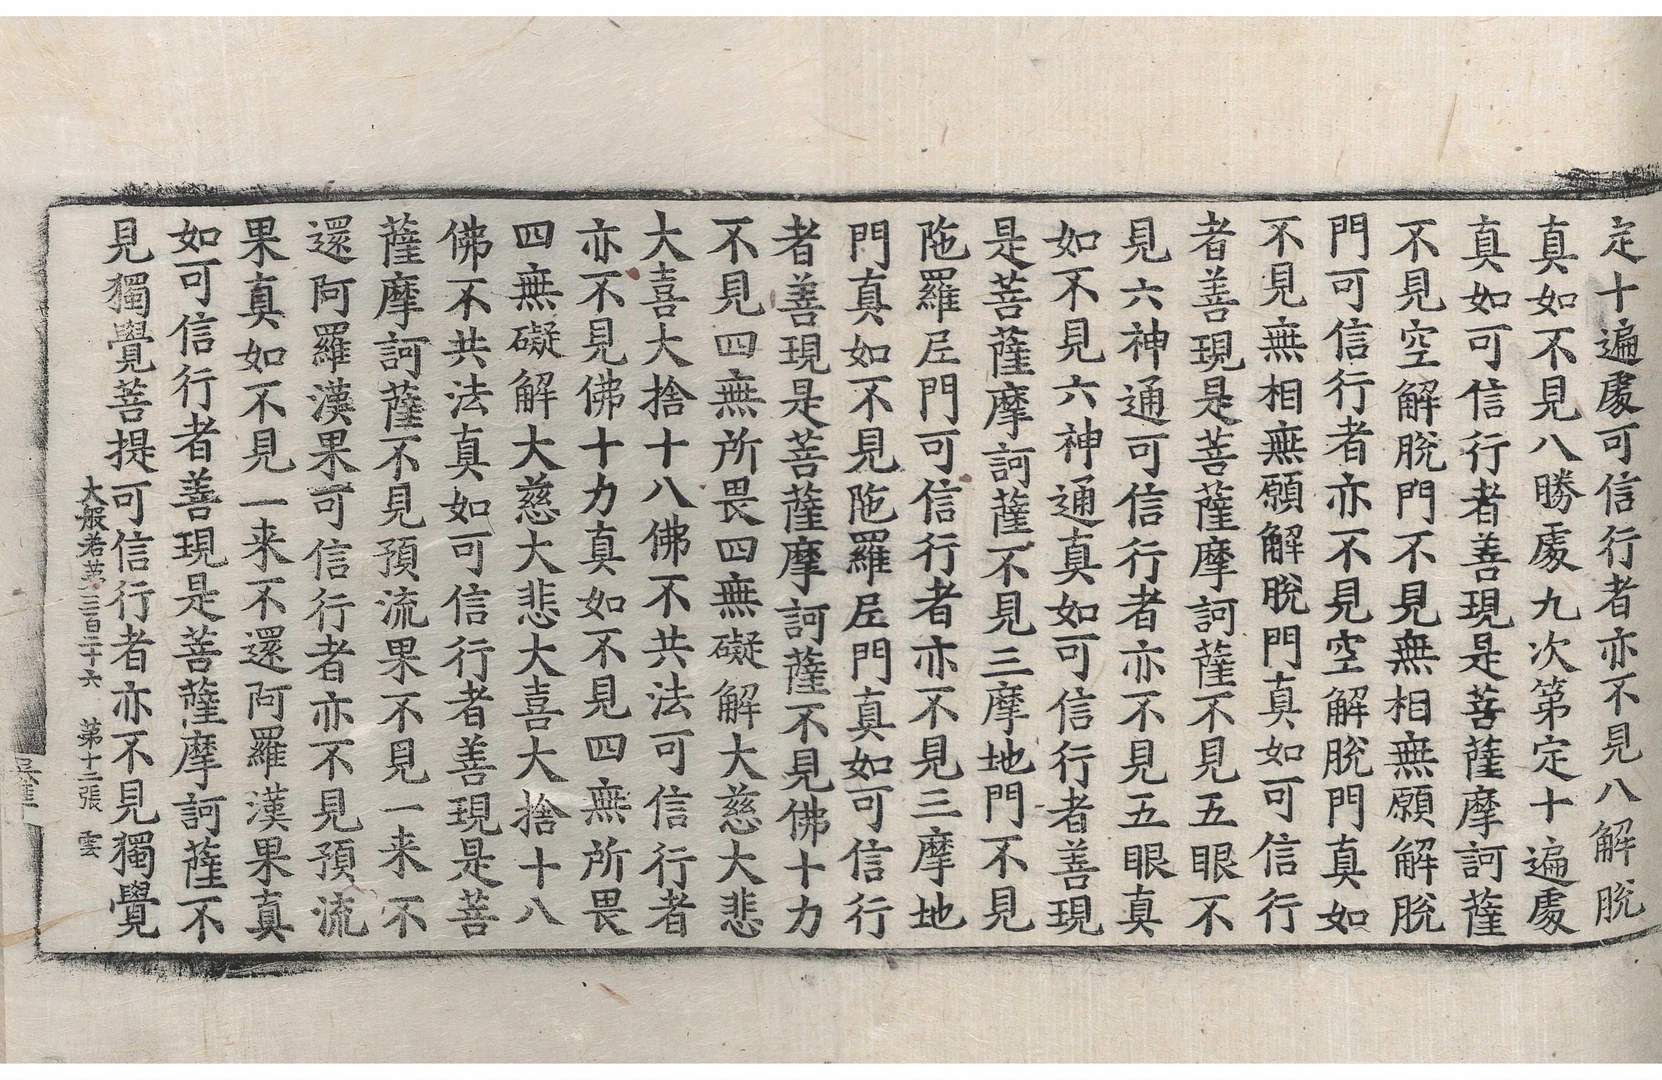 定十遍處可信行者亦不見八解脫
真如不見八勝處九次第定十遍處
真如可信行者善現是菩薩摩訶薩
不見空解脫門不見無相無願解脫
門可信行者亦不見空解脫門真如
不見無相無願解脫門真如可信行
者善現是菩薩摩訶薩不見五眼不
見六神通可信行者亦不見五眼真
如不見六神通真如可信行者善現
是菩薩摩訶薩不見三摩地門不見
陁羅尼門可信行者亦不見三摩地
門真如不見陁羅尼門真如可信行
者善現是菩薩摩訶薩不見佛十力
不見四無所畏四無礙解大慈大悲
大喜大捨十八佛不共法可信行者
亦不見佛十力真如不見四無所畏
四無礙解大慈大悲大喜大捨十八
佛不共法真如可信行者善現是菩
薩摩訶薩不見預流果不見一来不
還阿羅漢果可信行者亦不見預流
果真如不見一来不還阿羅漢果真
如可信行者善現是菩薩摩訶薩不
見獨覺菩提可信行者亦不見獨覺
大般若第三百二十六 第十二張 雲